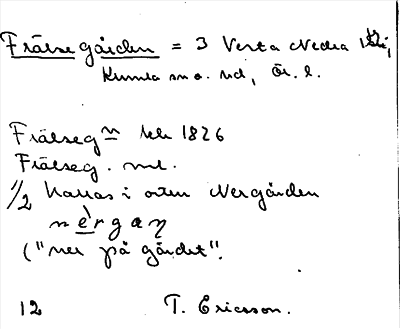 Frälsegården = 3 Västra Nedra
Kumla sn o. hd, Ör. l.
Frälseg n lk 1826
Frälseg. ml.
1/2 kallas i orten Nergården
nèrgaɳ
("ner på gärdet".
12 T. Ericsson.